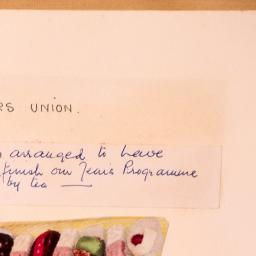 RS UNION.
arranged to have
finish our Year's Programme
by tea